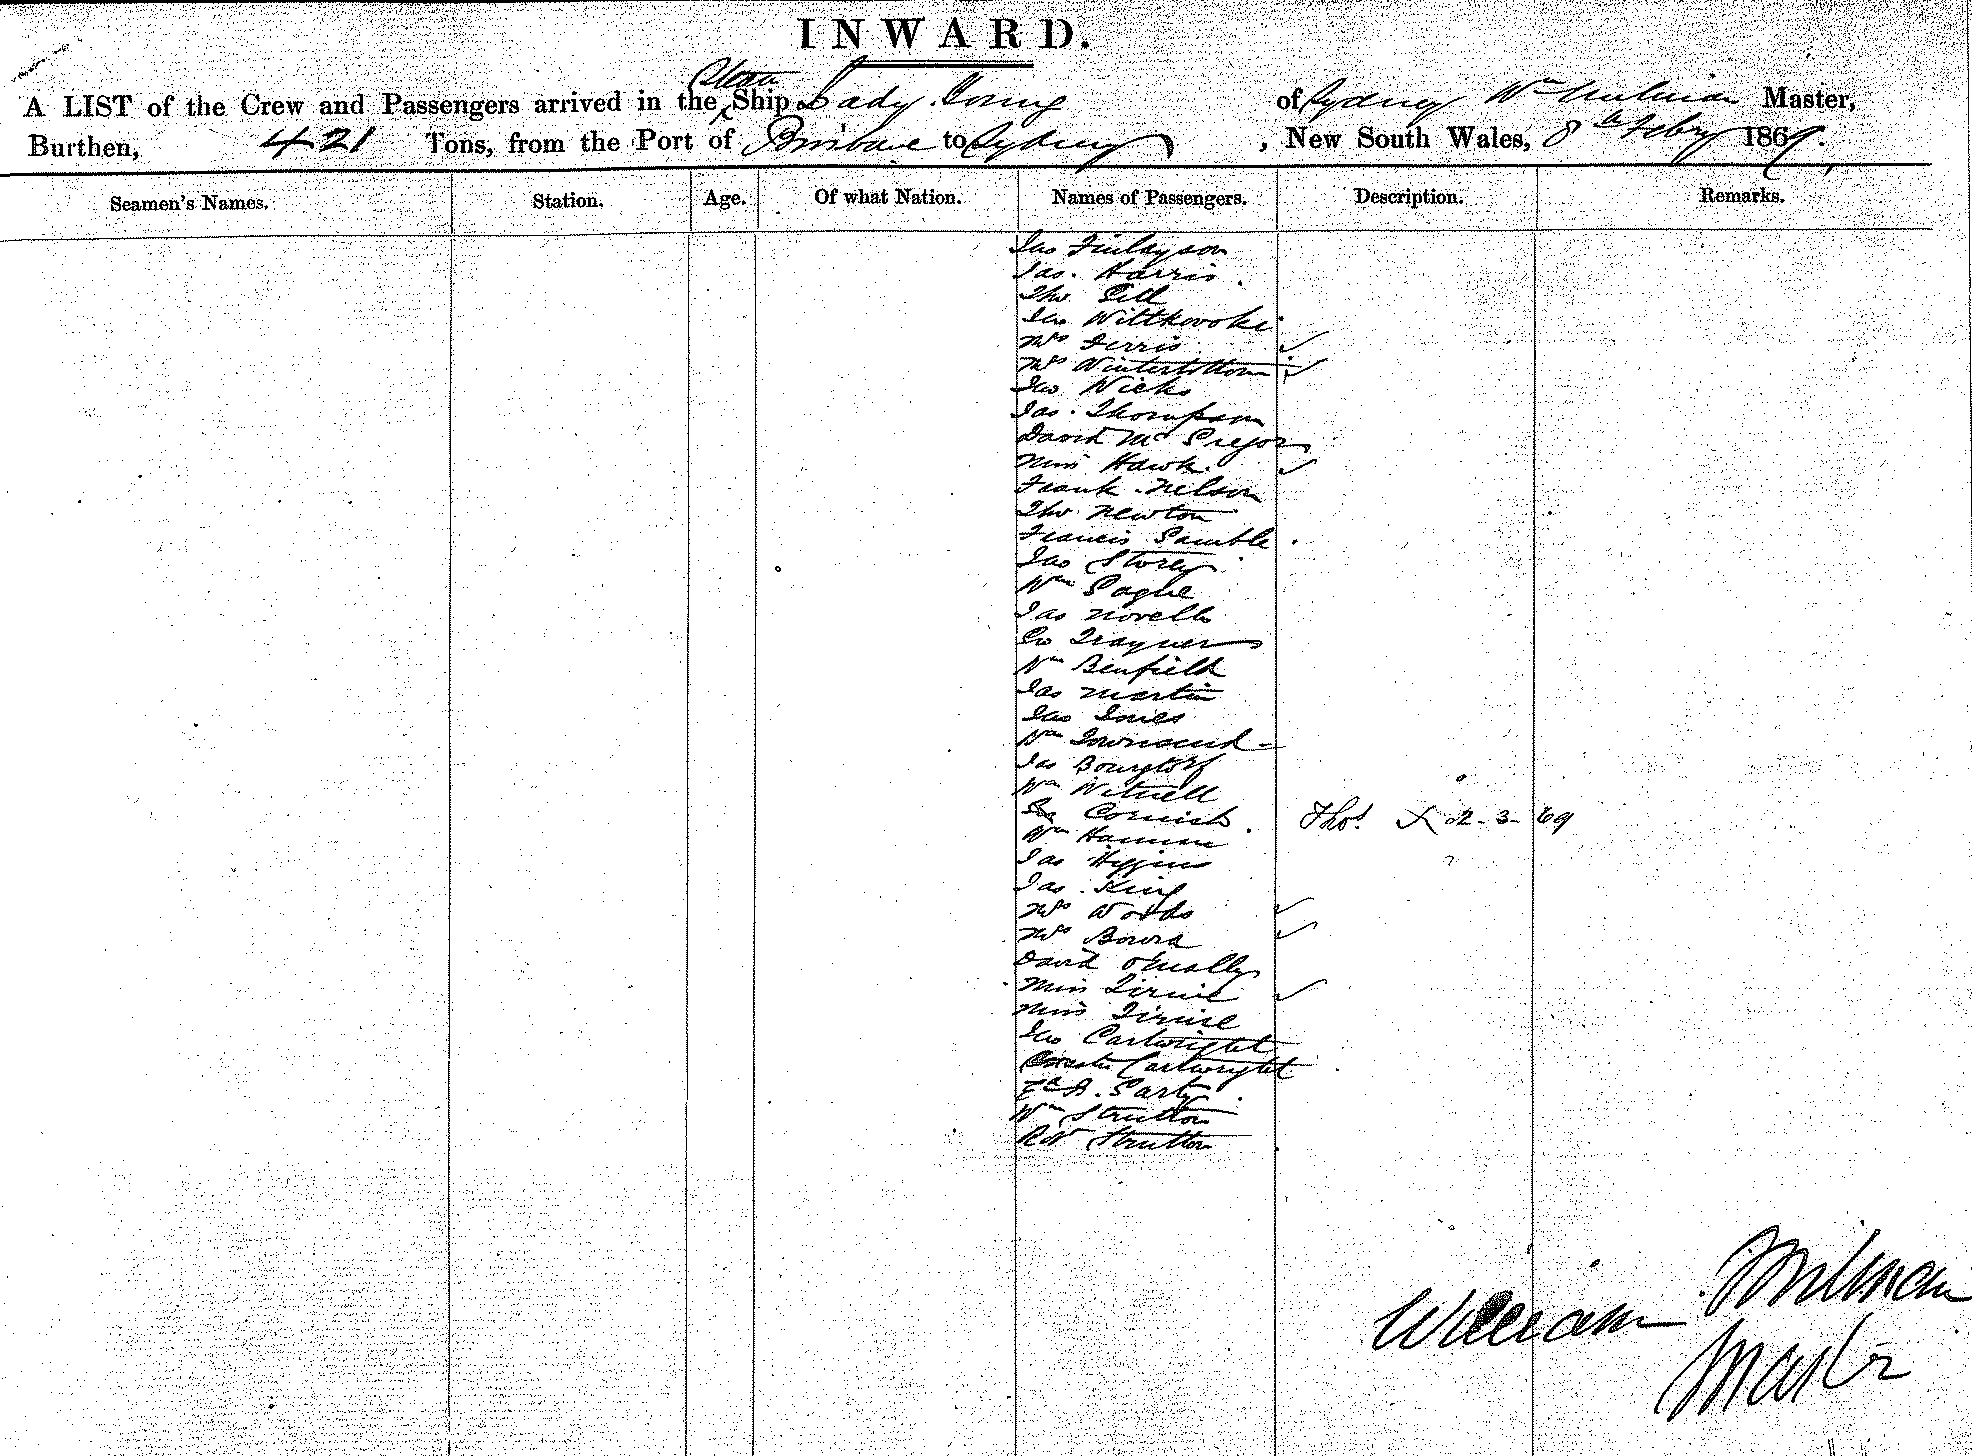 INWARD.
A LIST of the Crew and Passengers arrived in the Steam Ship Lady Young of Sydney Wm Milman Master,
Burthen, 421 Tons, from the Port of Brisbane to Sydney, New South Wales, 8th Feby 1869.
Seamen's Names. Station. Age. Of what Nation. Names of Passengers. Description. Remarks.
Jno Finlayson
Jas. Harris
Tho Gill
Jno Wittkowski
Mrs Ferris
Mrs Wintertottom
Jno Wicks
Jas. Thompson
David McGregor
Miss Hawk
Frank Nelson
Tho Newton
Francis Gamble
Jas Storey
Wm
Jas Novelle
Geo Trayner
Wm Benfield
Jas Martin
Jno Jones
Wm Townsend
Jas
Wm Witnell
Cornish Thos. X 2-3-69
Wm Hannan
Jas Higgins
Jas. King
Mrs Woods
Mrs Bowra
David O'Mally
Miss
Miss
Jno Cartwright
Cartwright
Wm Strutton
RW Strutton
William Milman
Master